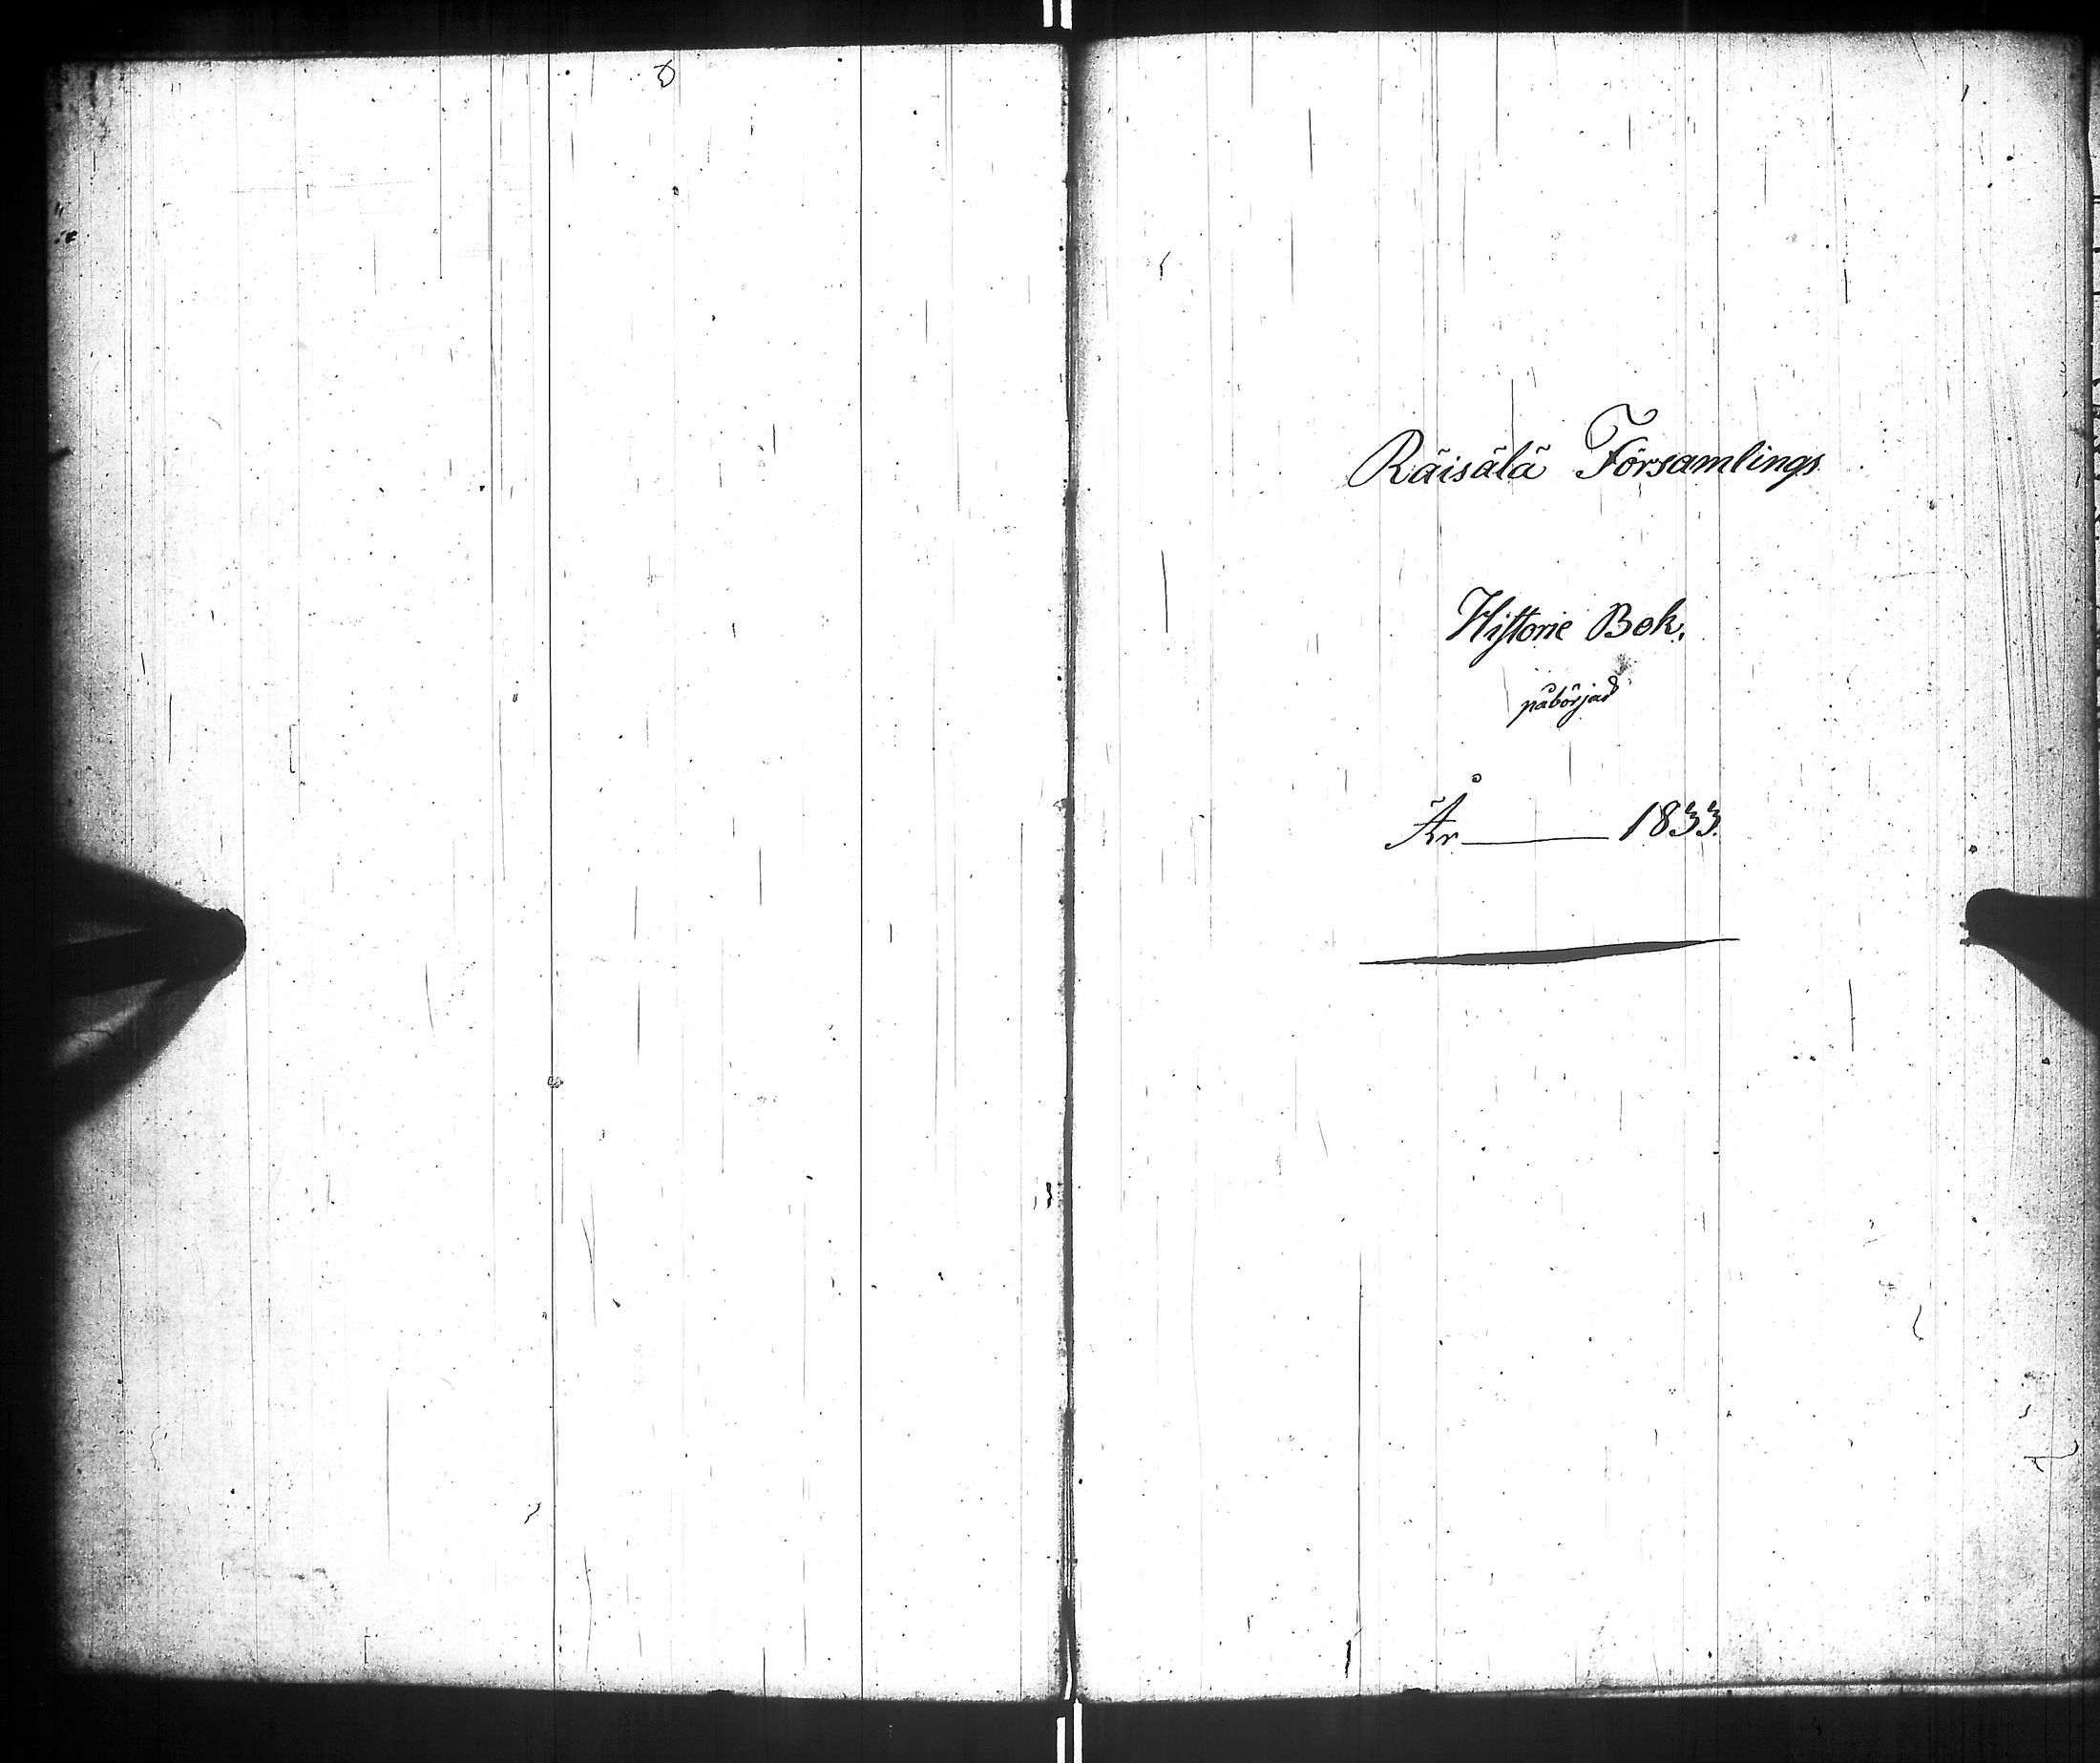 Räisälä Församlings
Historie Bok.
påbörjad
År 1833.